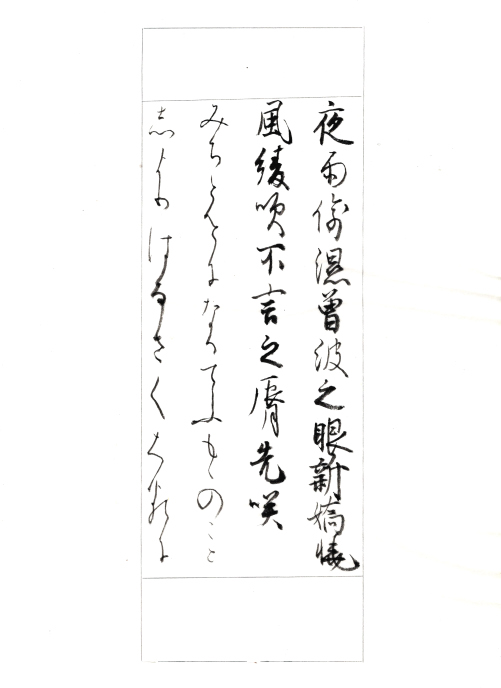 夜雨偸湿曾波之眼新嬌曉
風緩吹不言之脣先咲
みちとせになるてふもゝのこと
しよりはなさくはるに